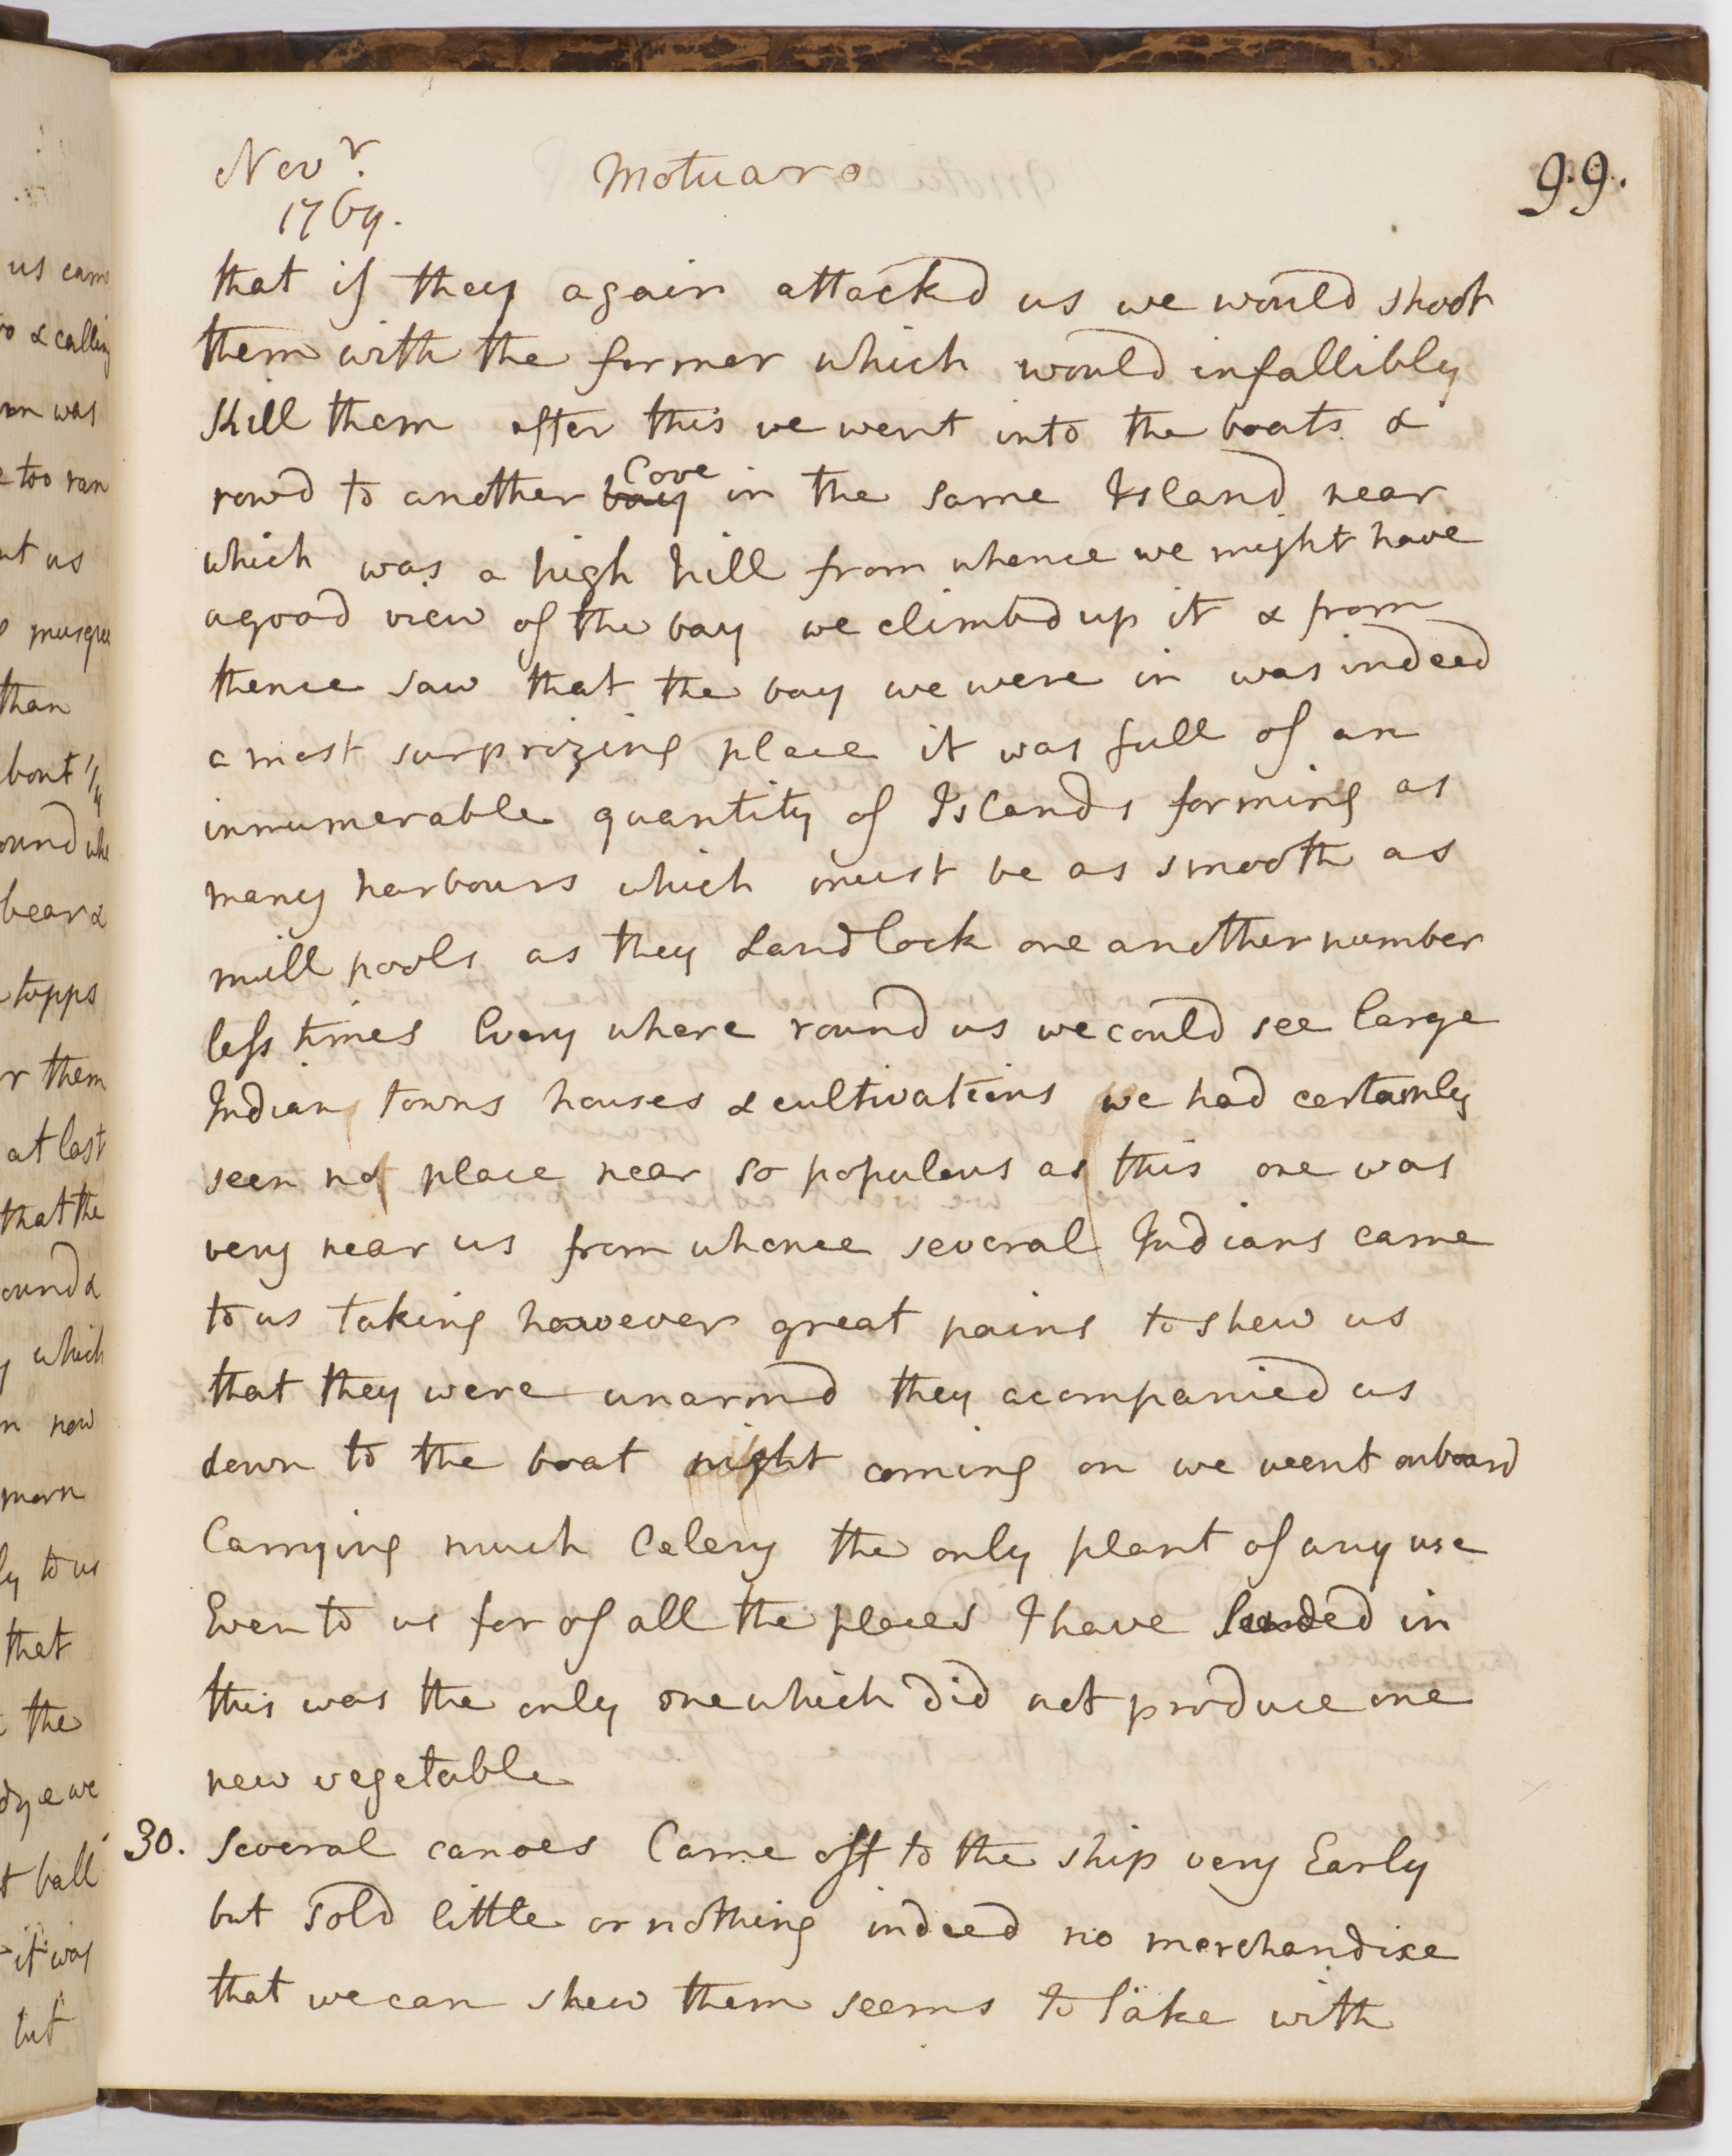 Novr.
1769.
Motuaro
99.
that if they again attackd us we would shoot
them with the former which would infallibly
kill them after this we went into the boats &
rowd to another bay Cove in the same Island near
which was a high hill from whence we might have
a good view of the bay we climbd up it & from
thence saw that the bay we were in was indeed
a most surprizing place it was full of an
innumerable quantity of Islands forming as
many harbours which must be as smooth as
mill pools as they Landlock one another number
less times Every where round us we could see large
Indian towns houses & cultivations we had certainly
seen no place near so populous as this one was
very near us from whence several Indians came
to us taking however great pains to shew us
that they were unarmd they acompanied us
down to the boat night coming on we went onboard
Carrying much Celery the only plant of any use
Even to us for of all the places I have landed in
this was the only one which did not produce one
new vegetable
30. Several canoes Came off to the ship very Early
but sold little or nothing indeed no merchandise
that we can shew them seems to take with
us came
& calling
was
too ran
us
than
bout 1/4
bear &
topps
them
at last
that the
which
now
morn
to us
that
the
we
ball
it was
but